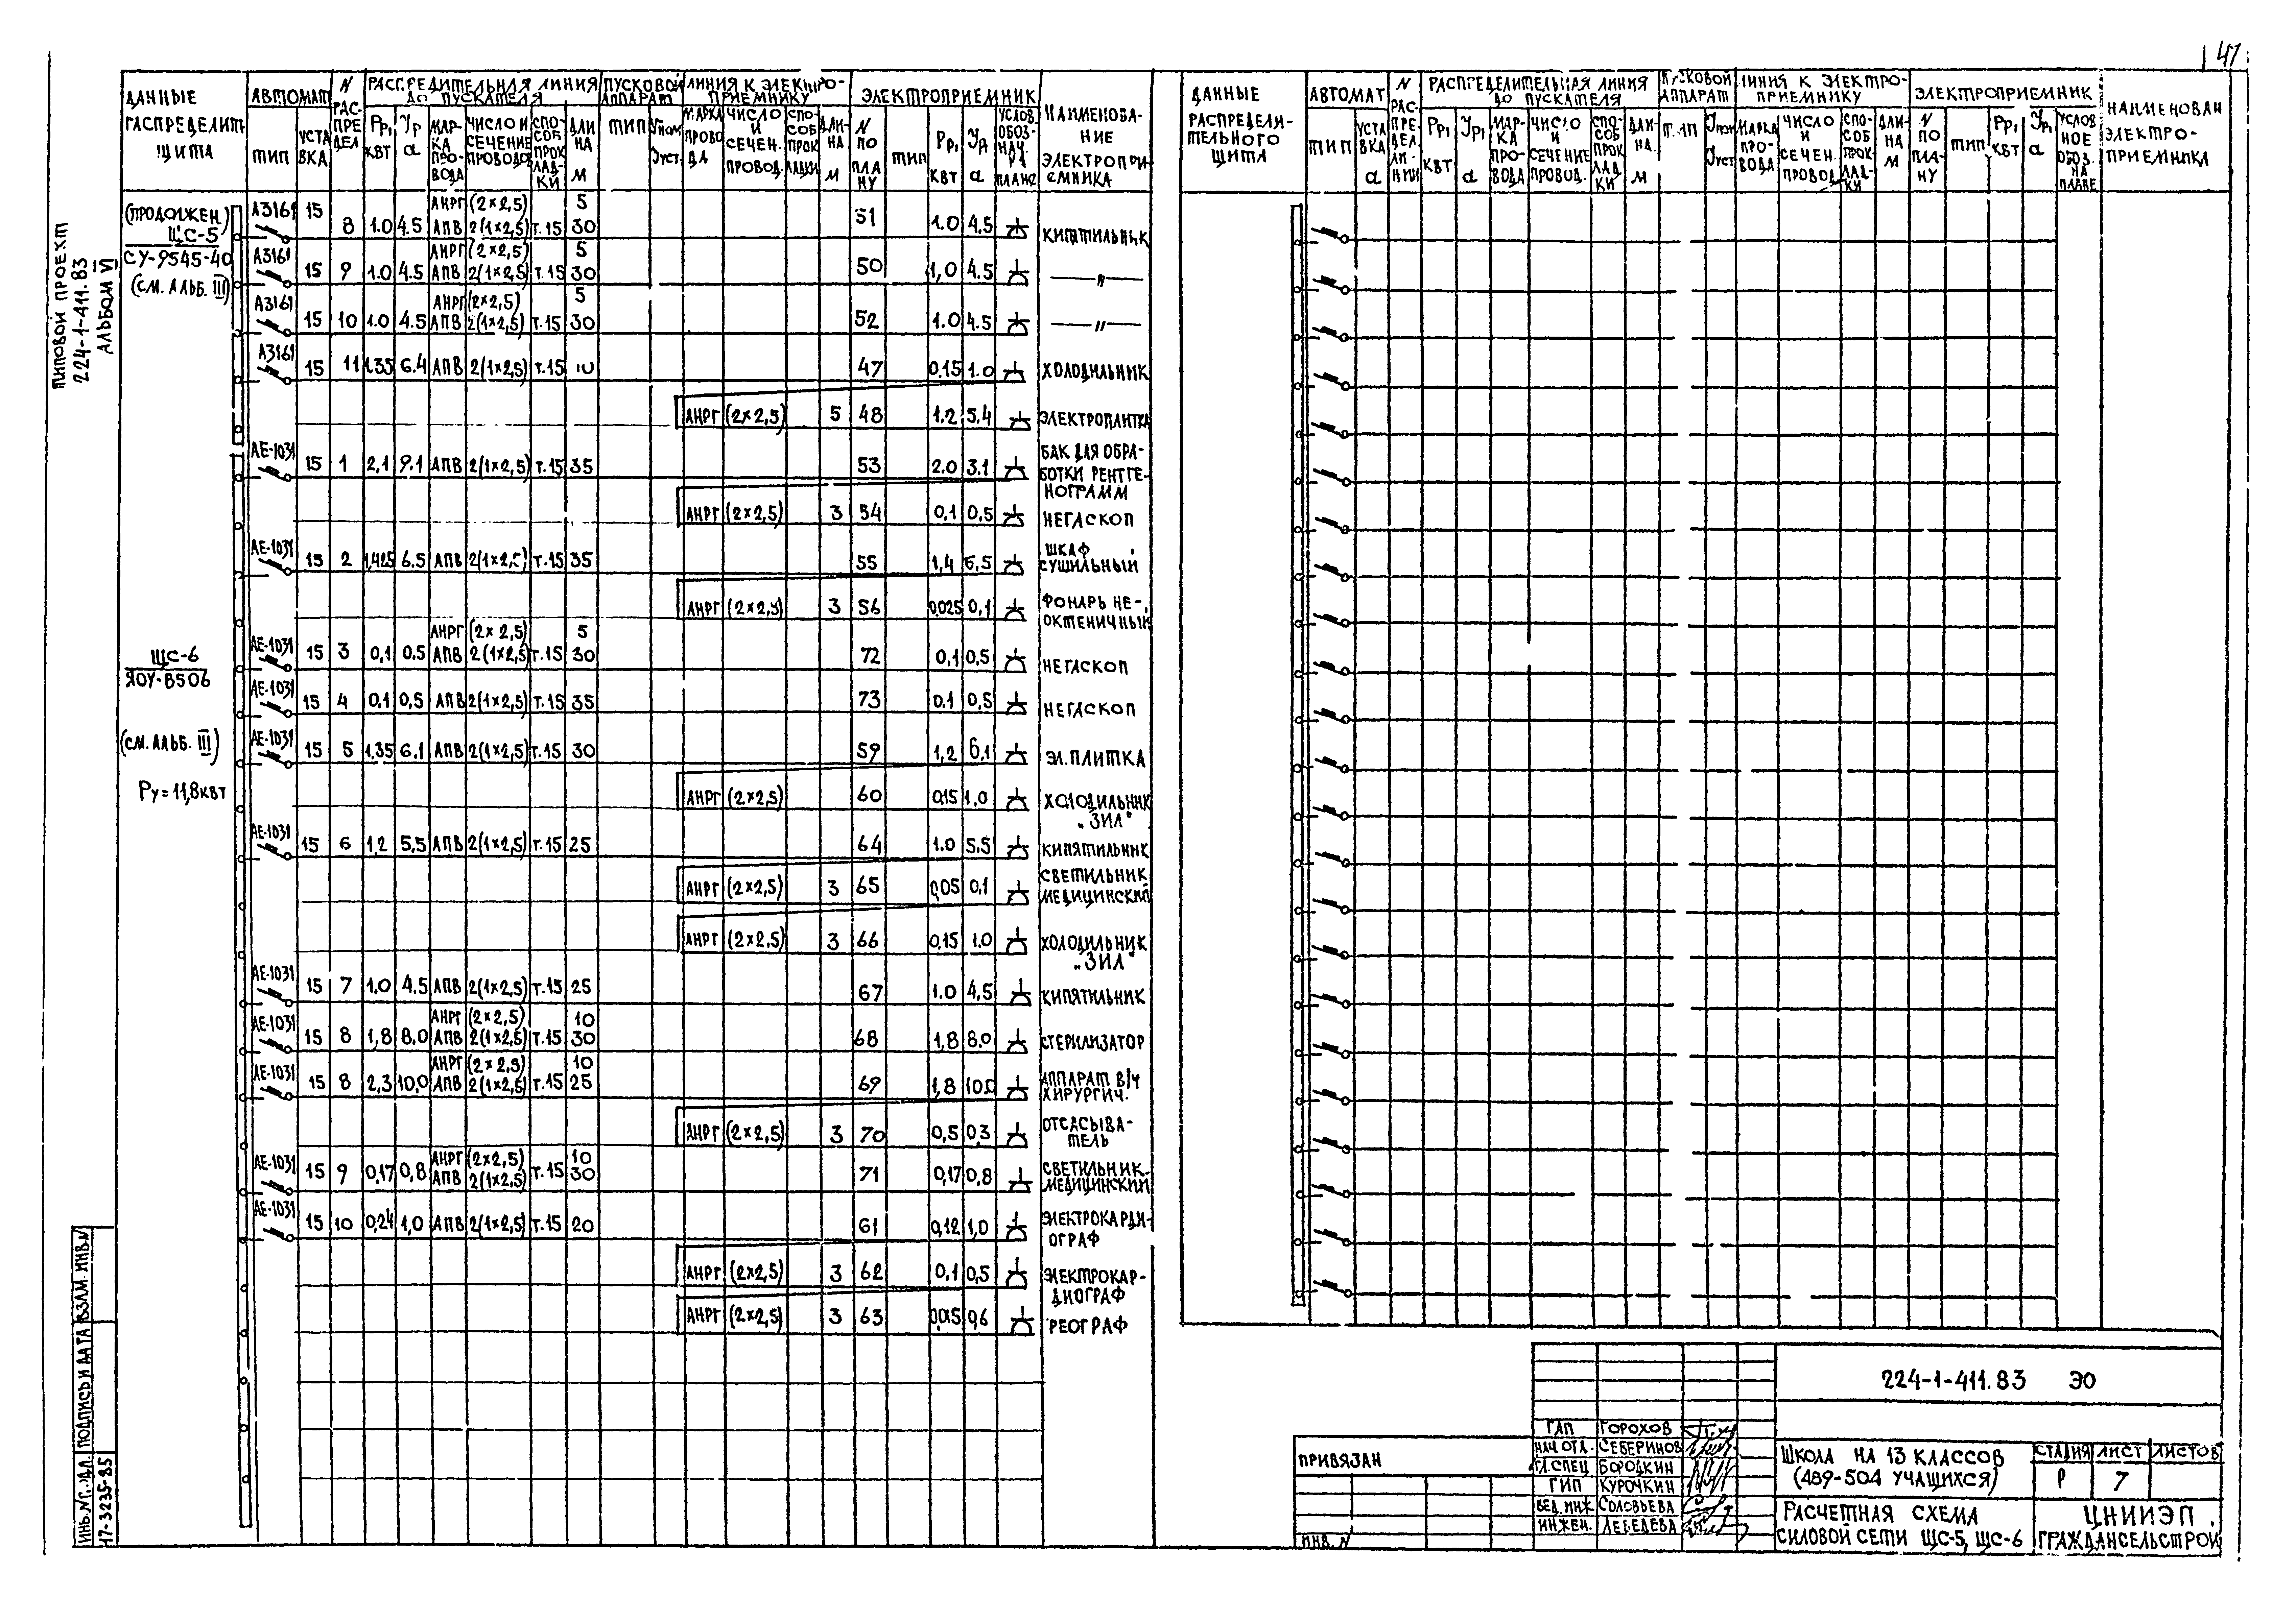 41
ТИПОВОЙ ПРОЕКТ
224-1-411.83
АЛЬБОМ VI
ДАННЫЕ РАСПРЕДЕЛИТ. ЩИТА
АВТОМАТ
ТИП
УСТАВКА
N РАСПРЕДЕЛ
РАСПРЕДИТЕЛЬНАЯ ЛИНИЯ ДО ПУСКАТЕЛЯ
Рр, КВТ
Ур а
МАРКА ПРОВОДА
ЧИСЛО И СЕЧЕНИЕ ПРОВОДОВ
СПОСОБ ПРОКЛАДКИ
ДЛИНА М
ПУСКОВОЙ АППАРАТ
ТИП
Уном. Ууст.
ЛИНИЯ К ЭЛЕКТРОПРИЕМНИКУ
МАРКА ПРОВОДА
ЧИСЛО И СЕЧЕН. ПРОВОД.
СПОСОБ ПРОКЛАДКИ
ДЛИНА М
ЭЛЕКТРОПРИЕМНИК
N ПО ПЛАНУ
ТИП
Рр, КВТ
Ур а
УСЛОВ. ОБОЗНАЧ. НА ПЛАНЕ
НАИМЕНОВАНИЕ ЭЛЕКТРОПРИЕМНИКА
(ПРОДОЛЖЕН)
ЩС-5
СУ-9545-40
(СМ. АЛЬБ. III)
А3161 15 8 1.0 4.5 АНРГ (2×2,5) 5
АПВ 2(1×2,5) т.15 30 51 1.0 4.5 КИПЯТИЛЬНИК
А3161 15 9 1.0 4.5 АНРГ (2×2,5) 5
АПВ 2(1×2,5) т.15 30 50 1,0 4.5 —"—
А3161 15 10 1.0 4.5 АНРГ (2×2,5) 5
АПВ 2(1×2,5) т.15 30 52 1.0 4.5 —"—
А3161 15 11 1.35 6.4 АПВ 2(1×2,5) т.15 10 47 0,15 1.0 ХОЛОДИЛЬНИК
АНРГ (2×2,5) 5 48 1.2 5.4 ЭЛЕКТРОПЛИТКА
ЩС-6
ЯОУ-8506
(СМ. АЛЬБ. III)
Ру=11,8КВТ
АЕ-1031 15 1 2,1 9.1 АПВ 2(1×2,5) т.15 35 53 2.0 3.1 БАК ДЛЯ ОБРАБОТКИ РЕНТГЕНОГРАММ
АНРГ (2×2,5) 3 54 0,1 0,5 НЕГАСКОП
АЕ-1031 15 2 1,425 6.5 АПВ 2(1×2,5) т.15 35 55 1,4 6,5 ШКАФ СУШИЛЬНЫЙ
АНРГ (2×2,5) 3 56 0,025 0,1 ФОНАРЬ НЕ-
ОКТЕНИЧНЫЙ
АЕ-1031 15 3 0,1 0.5 АНРГ (2×2,5) 5
АПВ 2(1×2,5) т.15 30 72 0,1 0,5 НЕГАСКОП
АЕ-1031 15 4 0,1 0,5 АПВ 2(1×2,5) т.15 35 73 0.1 0,5 НЕГАСКОП
АЕ-1031 15 5 1,35 6.1 АПВ 2(1×2,5) т.15 30 59 1,2 6,1 ЭЛ.ПЛИТКА
АНРГ (2×2,5) 60 0,15 1,0 ХОЛОДИЛЬНИК
„ЗИЛ"
АЕ-1031 15 6 1,2 5,5 АПВ 2(1×2,5) т.15 25 64 1.0 5.5 КИПЯТИЛЬНИК
АНРГ (2×2,5) 3 65 0,05 0,1 СВЕТИЛЬНИК МЕДИЦИНСКИЙ
АНРГ (2×2,5) 3 66 0,15 1.0 ХОЛОДИЛЬНИК
„ЗИЛ"
АЕ-1031 15 7 1.0 4.5 АПВ 2(1×2,5) т.15 25 67 1.0 4,5 КИПЯТИЛЬНИК
АЕ-1031 15 8 1,8 8.0 АНРГ (2×2,5) 10
АПВ 2(1×2,5) т.15 30 68 1,8 8.0 СТЕРИЛИЗАТОР
АЕ-1031 15 8 2,3 10,0 АНРГ (2×2,5) 10
АПВ 2(1×2,5) т.15 25 69 1,8 10.0 АППАРАТ В/Ч ХИРУРГИЧ.
АНРГ (2×2,5) 3 70 0,5 0,3 ОТСАСЫВАТЕЛЬ
АЕ-1031 15 9 0,17 0,8 АНРГ (2×2,5) 10
АПВ 2(1×2,5) т.15 30 71 0,17 0,8 СВЕТИЛЬНИК МЕДИЦИНСКИЙ
АЕ-1031 15 10 0,24 1,0 АПВ 2(1×2,5) т.15 20 61 0,12 1,0 ЭЛЕКТРОКАРДИОГРАФ
АНРГ (2×2,5) 3 62 0,1 0,5 ЭЛЕКТРОКАРДИОГРАФ
АНРГ (2×2,5) 3 63 0,015 0,6 РЕОГРАФ
ДАННЫЕ РАСПРЕДЕЛИТЕЛЬНОГО ЩИТА
АВТОМАТ
ТИП
УСТАВКА а
N РАСПРЕДЕЛ. ЛИНИИ
РАСПРЕДЕЛИТЕЛЬНАЯ ЛИНИЯ ДО ПУСКАТЕЛЯ
Рр, КВТ
Ур, а
МАРКА ПРОВОДА
ЧИСЛО И СЕЧЕНИЕ ПРОВОД.
СПОСОБ ПРОКЛАДКИ
ДЛИНА. М
ПУСКОВОЙ АППАРАТ
ТИП
Уном Ууст
ЛИНИЯ К ЭЛЕКТРОПРИЕМНИКУ
МАРКА ПРОВОДА
ЧИСЛО И СЕЧЕН. ПРОВОД
СПОСОБ ПРОКЛАДКИ
ДЛИНА М
ЭЛЕКТРОПРИЕМНИК
N ПО ПЛАНУ
ТИП
Рр, КВТ
Ур, а
УСЛОВНОЕ ОБОЗ. НА ПЛАНЕ
НАИМЕНОВАН ЭЛЕКТРОПРИЕМНИКА
224-1-411.83 ЭО
ГАП ГОРОХОВ
НАЧ ОТД. СЕВЕРИНОВ
ГЛ.СПЕЦ БОРОДКИН
ГИП КУРОЧКИН
ВЕД.ИНЖ СОЛОВЬЕВА
ИНЖЕН. ЛЕБЕДЕВА
ПРИВЯЗАН
ИНВ. N
ШКОЛА НА 13 КЛАССОВ
(489-504 УЧАЩИХСЯ)
СТАДИЯ ЛИСТ ЛИСТОВ
Р 7
РАСЧЕТНАЯ СХЕМА
СИЛОВОЙ СЕТИ ЩС-5, ЩС-6
ЦНИИЭП
ГРАЖДАНСЕЛЬСТРОЙ
ИНВ.N ПОДЛ. ПОДПИСЬ И ДАТА ВЗАМ. ИНВ.N
17-3235-85